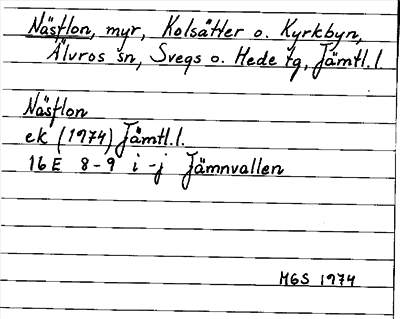 Näsflon, myr, Kolsätter o. Kyrkbyn,
Älvros sn, Svegs o. Hede tg, Jämtl.l.
Näsflon
ek (1974) Jämtl.l.
16 E 8-9 i-j Jämnvallen
MGS 1974